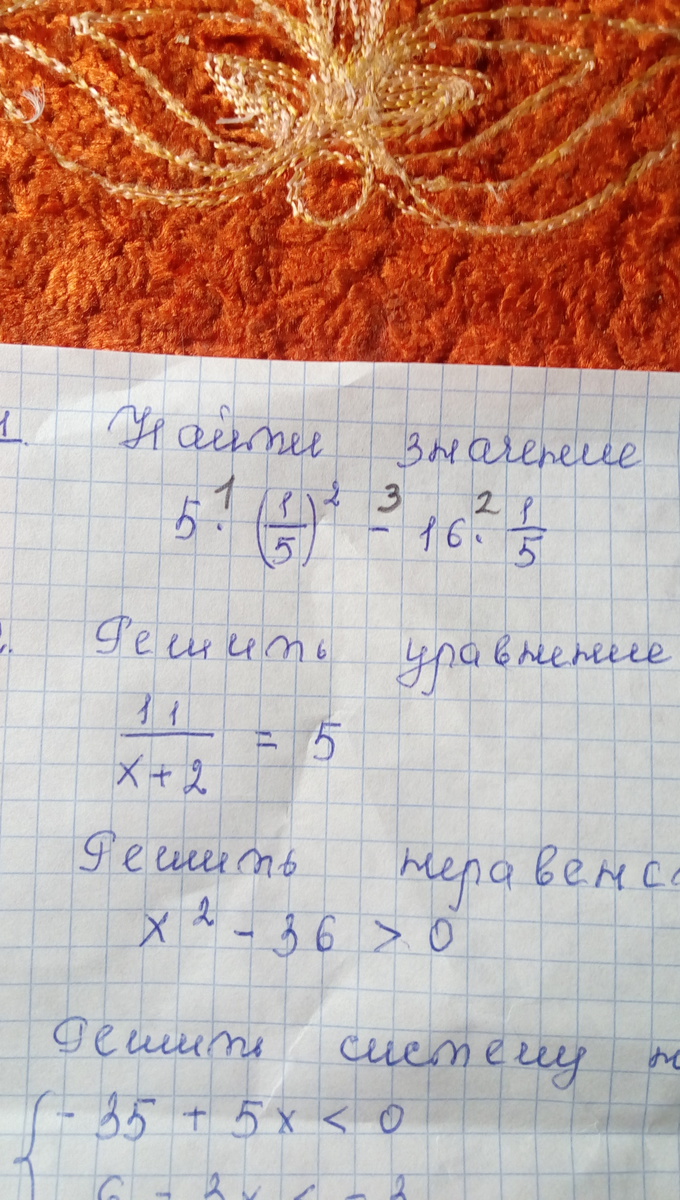 1. Найти значение
5 · (1/5)² - 16 · 1/5
1 3 2
Решить уравнение
11/(x+2) = 5
Решить неравенс
x² - 36 > 0
Решить систему
{ - 35 + 5x < 0